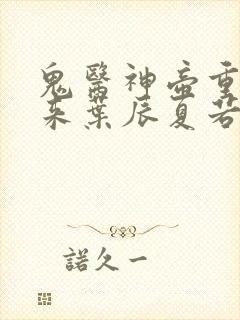 鬼醫神壺重
來葉辰夏若
諾久一